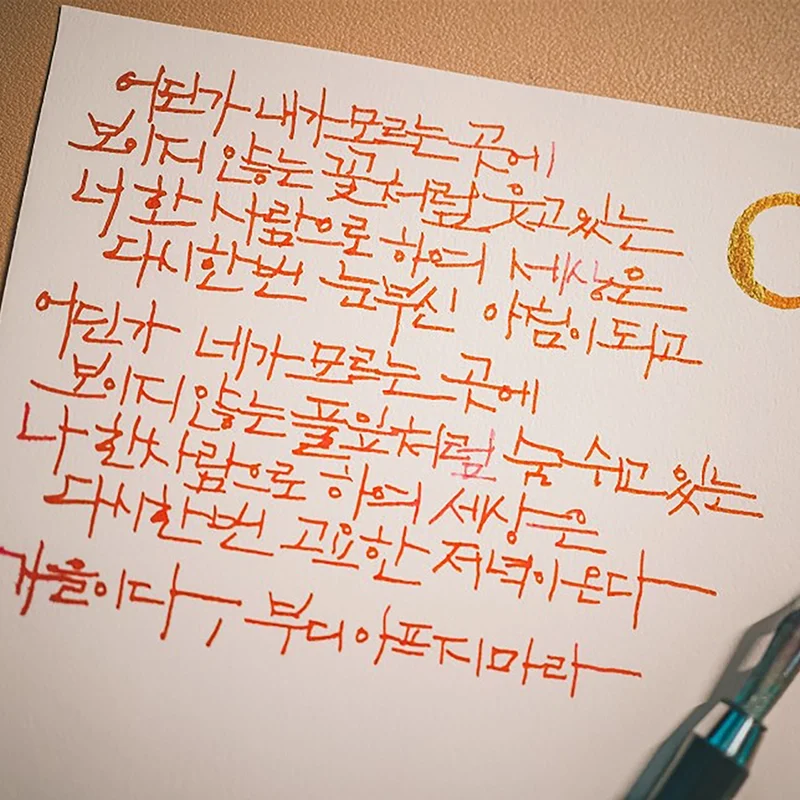 어딘가 내가 모르는 곳에
보이지 않는 꽃처럼 웃고 있는
너 한 사람으로 하여 세상은
다시 한번 눈부신 아침이 되고
어딘가 네가 모르는 곳에
보이지 않는 풀잎처럼 숨 쉬고 있는
나 한 사람으로 하여 세상은
다시 한번 고요한 저녁이 온다
가을이다, 부디 아프지 마라